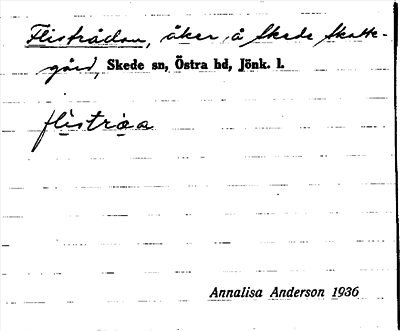 Flistrådan, åker, å Skede Skatte-
gård, Skede sn, Östra hd, Jönk. l.
flistrɷa
Annalisa Anderson 1936